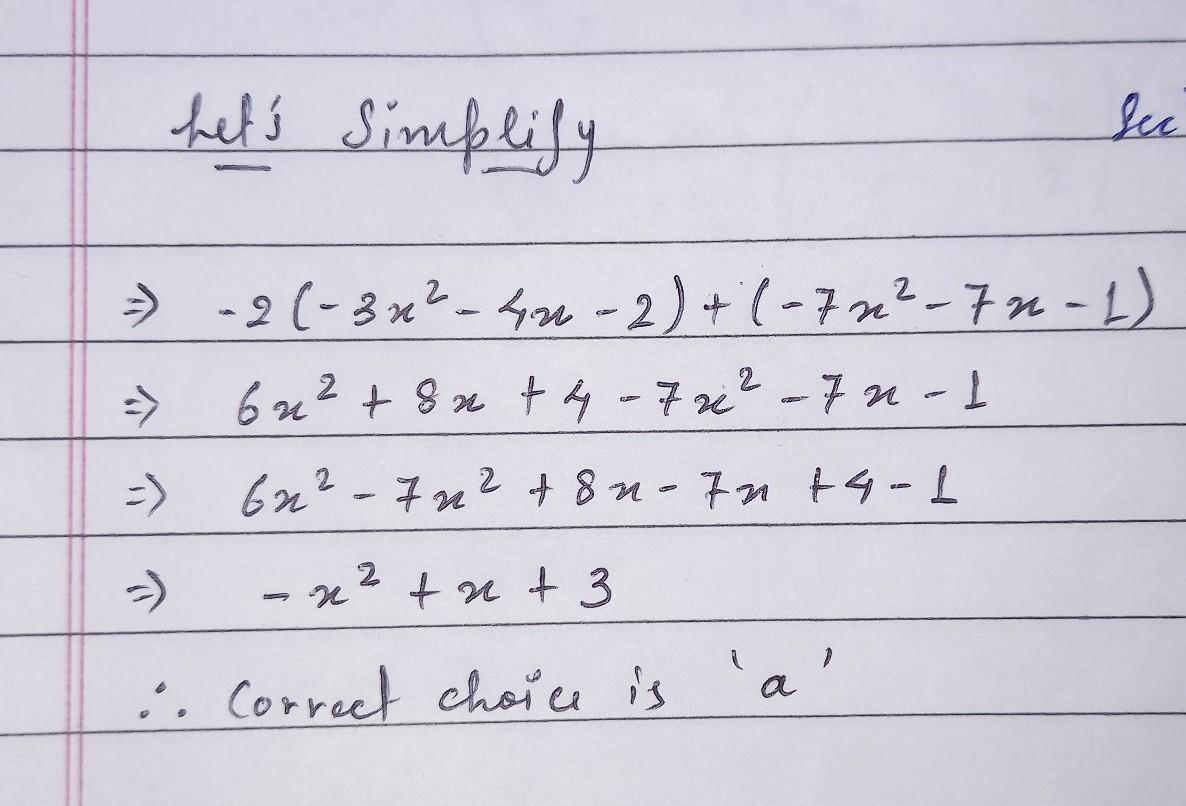 Let's Simplify
⇒ -2(-3x² - 4x - 2) + (-7x² - 7x - 1)
⇒ 6x² + 8x + 4 - 7x² - 7x - 1
⇒ 6x² - 7x² + 8x - 7x + 4 - 1
⇒ - x² + x + 3
∴ Correct choice is 'a'